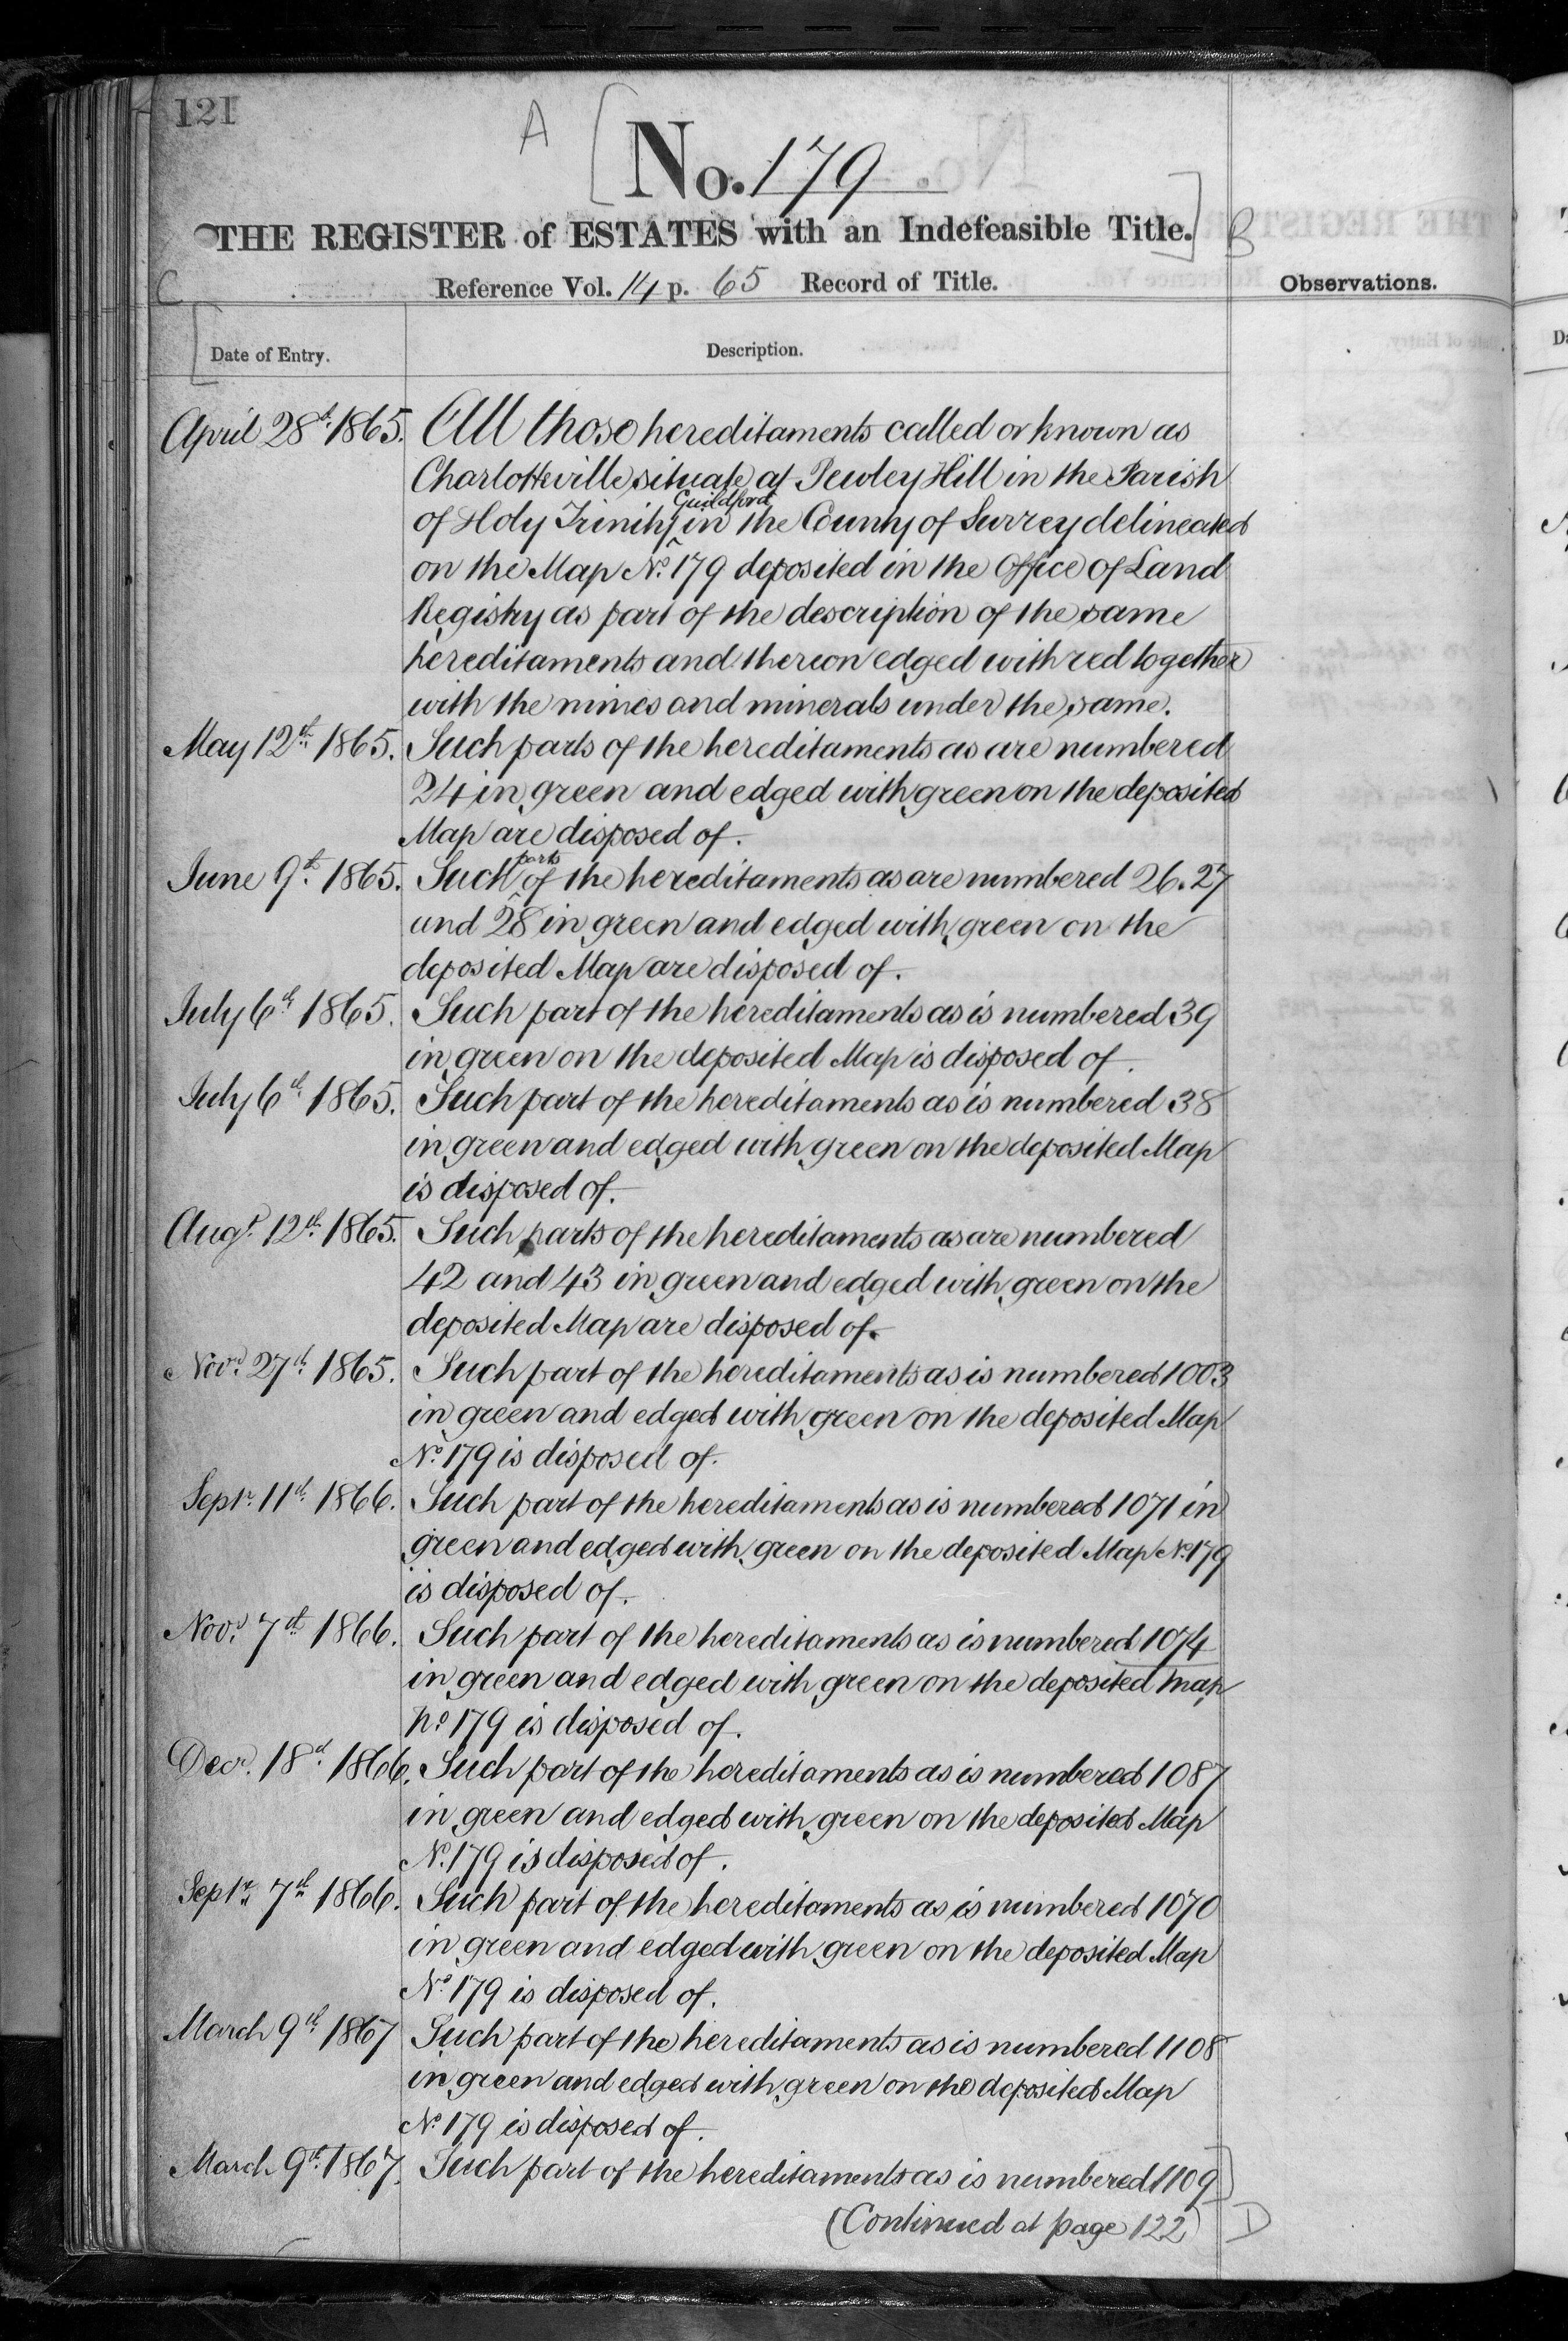 121
A
No. 179
THE REGISTER of ESTATES with an Indefeasible Title.
B
C
Reference Vol. 14 p. 65 Record of Title.
Observations.
Date of Entry.
Description.
April 28th 1865. All those hereditaments called or known as
Charlotteville situate at Pewley Hill in the Parish
Guildford
of Holy Trinity in the County of Surrey delineated
on the Map No. 179 deposited in the Office of Land
Registry as part of the description of the same
hereditaments and thereon edged with red together
with the mines and minerals under the same.
May 12th 1865. Such parts of the hereditaments as are numbered
24 in green and edged with green on the deposited
Map are disposed of.
parts
June 9th 1865. Such of the hereditaments as are numbered 26. 27
and 28 in green and edged with green on the
deposited Map are disposed of.
July 6th 1865. Such part of the hereditaments as is numbered 39
in green on the deposited Map is disposed of.
July 6th 1865. Such part of the hereditaments as is numbered 38
in green and edged with green on the deposited Map
is disposed of.
Augt. 12th 1865. Such parts of the hereditaments as are numbered
42 and 43 in green and edged with green on the
deposited Map are disposed of.
Novr. 27th 1865. Such part of the hereditaments as is numbered 1003
in green and edged with green on the deposited Map
No. 179 is disposed of.
Septr. 11th 1866. Such part of the hereditaments as is numbered 1071 in
green and edged with green on the deposited Map No. 179
is disposed of.
Novr. 7th 1866. Such part of the hereditaments as is numbered 1074
in green and edged with green on the deposited map
No. 179 is disposed of.
Decr. 18th 1866. Such part of the hereditaments as is numbered 1087
in green and edged with green on the deposited Map
No. 179 is disposed of.
Septr. 7th 1866. Such part of the hereditaments as is numbered 1070
in green and edged with green on the deposited Map
No. 179 is disposed of.
March 9th 1867 Such part of the hereditaments as is numbered 1108
in green and edged with green on the deposited Map
No. 179 is disposed of.
March 9th 1867. Such part of the hereditaments as is numbered 1109
(Continued at page 122)
D